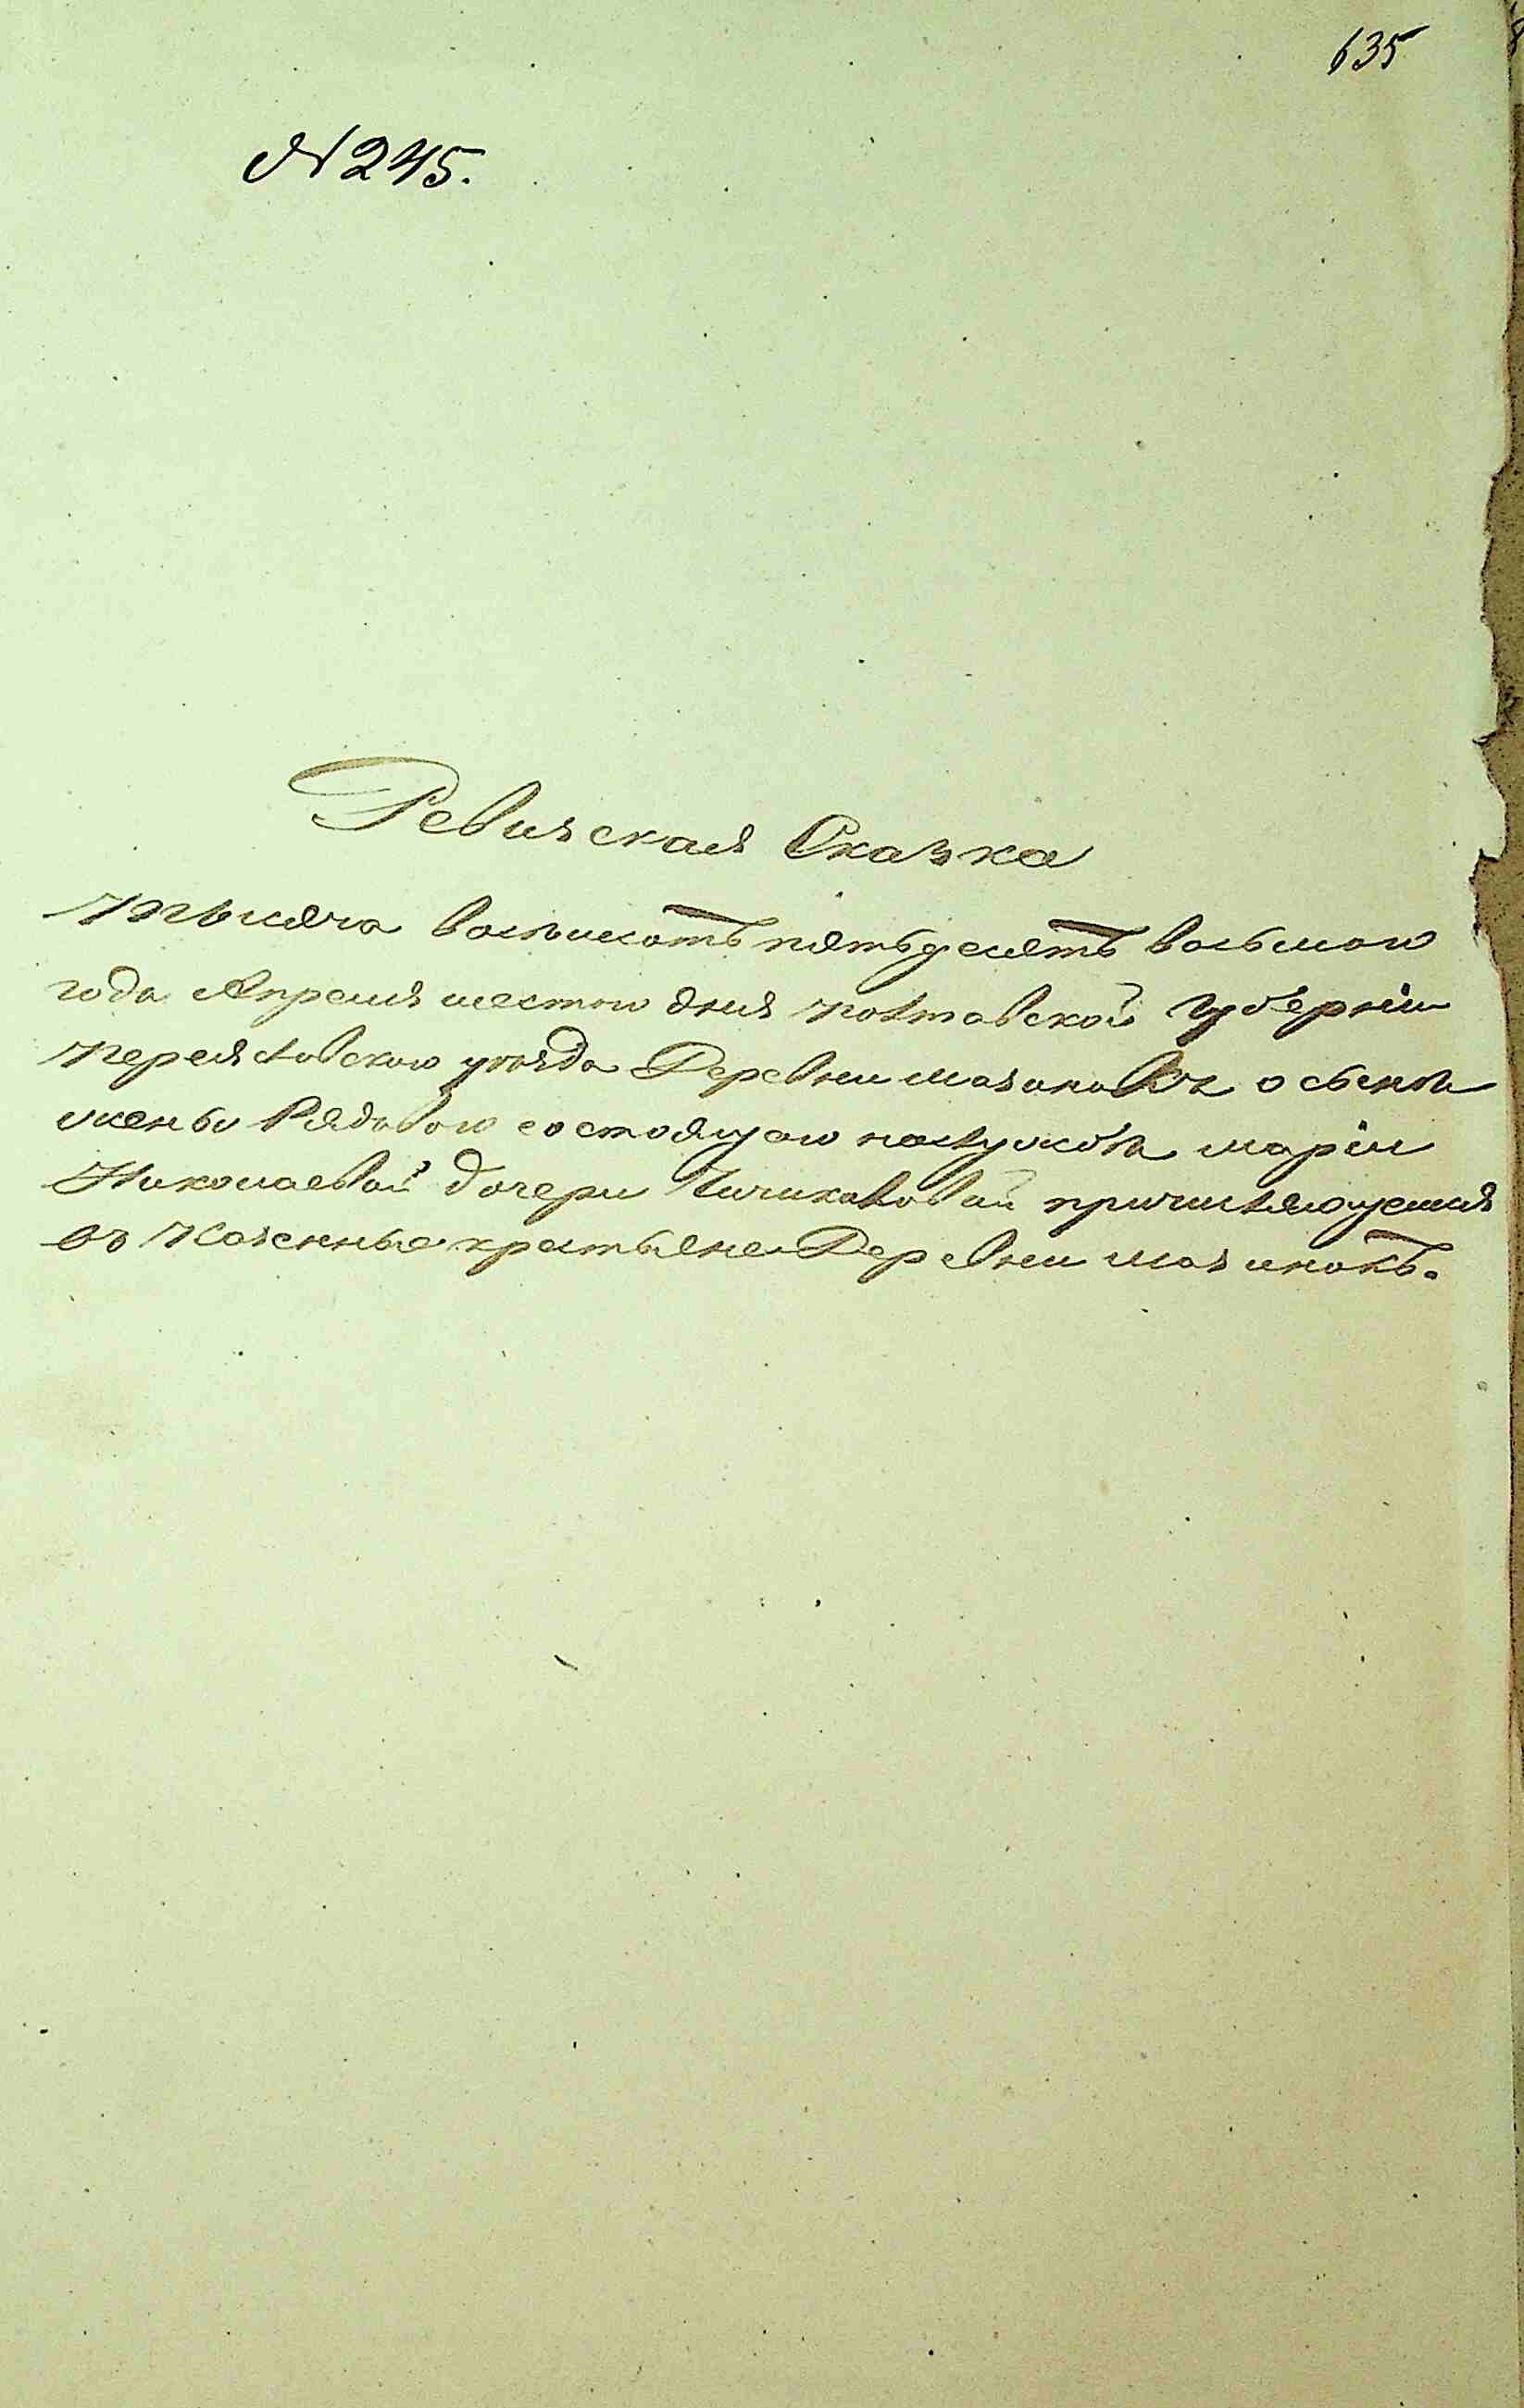 635
№ 245.
Ревизская Сказка
Тысяча восемсотъ пятьдесятъ восьмого
года Апреля шестого дня Полтавской губерніи
Переяславского уезда Деревни о сыне
жены Рядового состоящего на службе маріи
Николаевой дочери причисляющемся
въ Казенные крестьяне Деревни